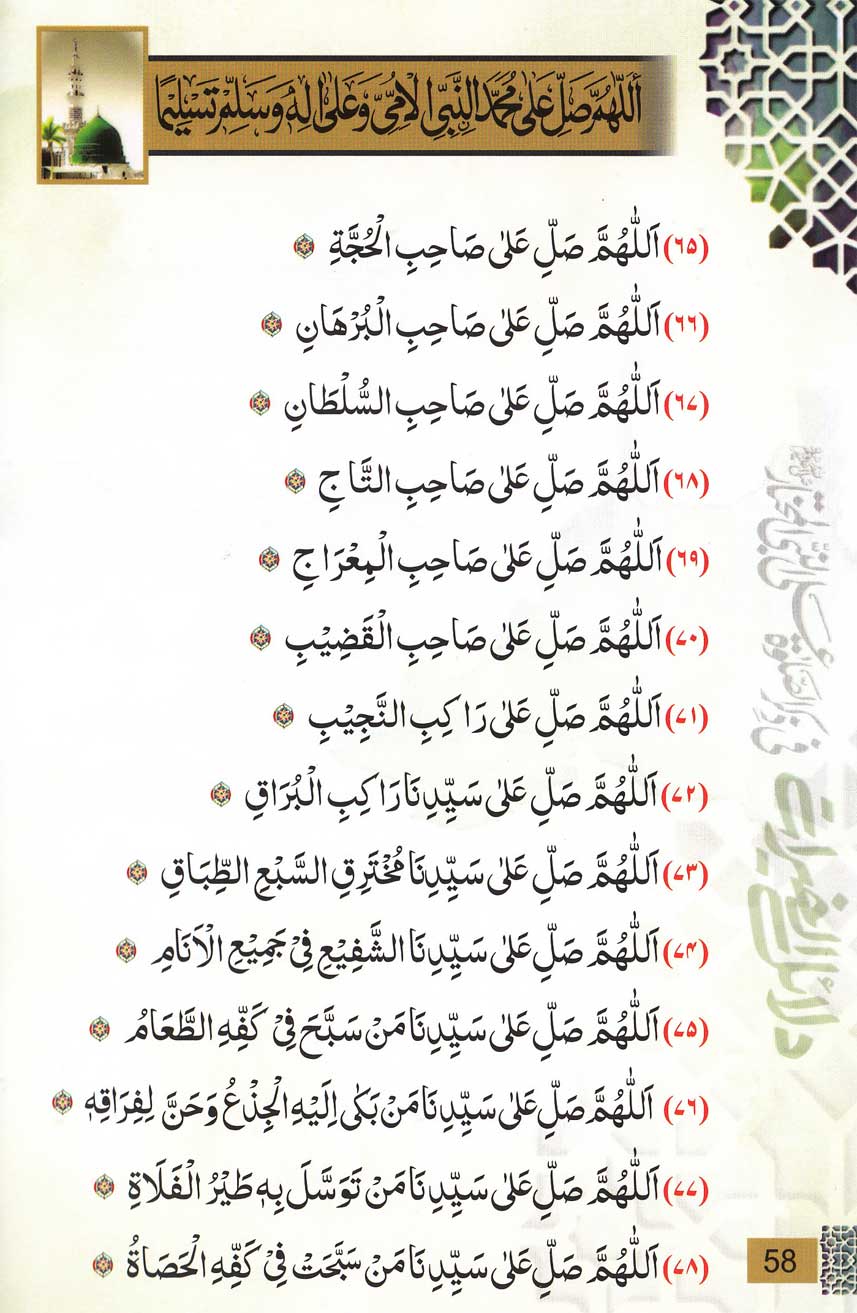 أَللّٰهُمَّ صَلِّ عَلٰى مُحَمَّدِ النَّبِيِّ الْاُمِّيِّ وَعَلٰى اٰلِهٖ وَسَلِّمْ تَسْلِيْمًا
(۶۵) اَللّٰهُمَّ صَلِّ عَلٰى صَاحِبِ الْحُجَّةِ
(۶۶) اَللّٰهُمَّ صَلِّ عَلٰى صَاحِبِ الْبُرْهَانِ
(۶۷) اَللّٰهُمَّ صَلِّ عَلٰى صَاحِبِ السُّلْطَانِ
(۶۸) اَللّٰهُمَّ صَلِّ عَلٰى صَاحِبِ التَّاجِ
(۶۹) اَللّٰهُمَّ صَلِّ عَلٰى صَاحِبِ الْمِعْرَاجِ
(۷۰) اَللّٰهُمَّ صَلِّ عَلٰى صَاحِبِ الْقَضِيْبِ
(۷۱) اَللّٰهُمَّ صَلِّ عَلٰى رَاكِبِ النَّجِيْبِ
(۷۲) اَللّٰهُمَّ صَلِّ عَلٰى سَيِّدِنَا رَاكِبِ الْبُرَاقِ
(۷۳) اَللّٰهُمَّ صَلِّ عَلٰى سَيِّدِنَا مُخْتَرِقِ السَّبْعِ الطِّبَاقِ
(۷۴) اَللّٰهُمَّ صَلِّ عَلٰى سَيِّدِنَا الشَّفِيْعِ فِيْ جَمِيْعِ الْاَنَامِ
(۷۵) اَللّٰهُمَّ صَلِّ عَلٰى سَيِّدِنَا مَنْ سَبَّحَ فِيْ كَفِّهِ الطَّعَامُ
(۷۶) اَللّٰهُمَّ صَلِّ عَلٰى سَيِّدِنَا مَنْ بَكٰى اِلَيْهِ الْجِذْعُ وَحَنَّ لِفِرَاقِهٖ
(۷۷) اَللّٰهُمَّ صَلِّ عَلٰى سَيِّدِنَا مَنْ تَوَسَّلَ بِهٖ طَيْرُ الْفَلَاةِ
(۷۸) اَللّٰهُمَّ صَلِّ عَلٰى سَيِّدِنَا مَنْ سَبَّحَتْ فِيْ كَفِّهِ الْحَصَاةُ
دلائل الخیرات
58